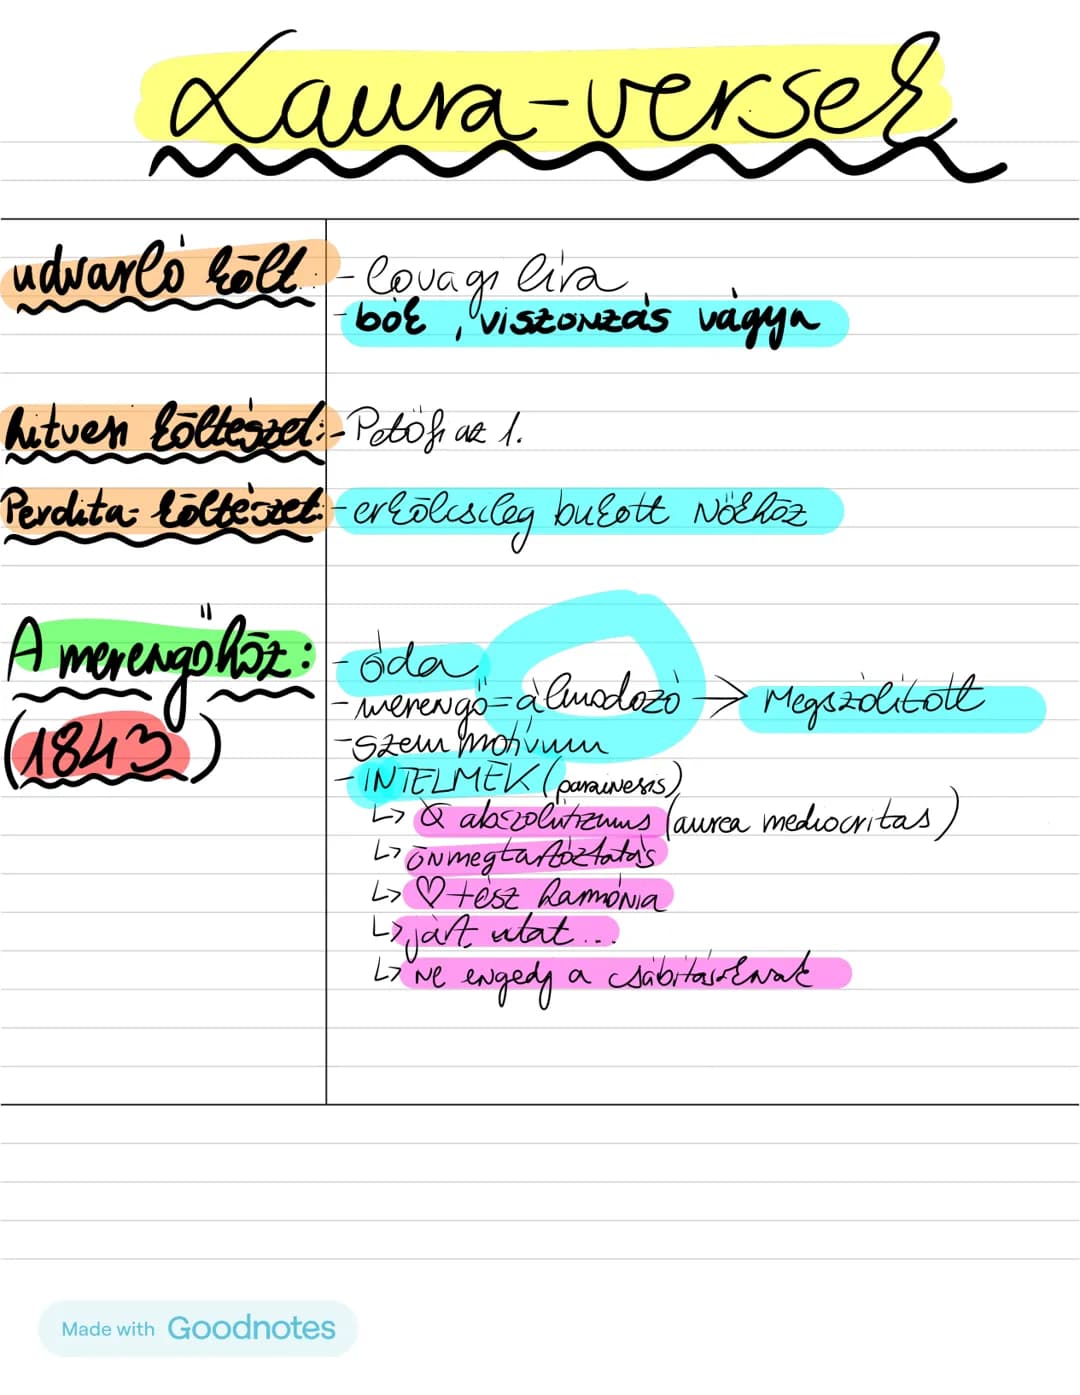 Laura-versek
udvarló költ.:
- lovagi líra
- bók, viszonzás vágya
hitvesi költészet:
- Petőfi az 1.
Perdita-költészet:
- erkölcsileg bukott nőkhöz
A merengőhöz:
(1843)
- óda
- merengő=álmodozó → Megszólított
- szem motívum
- INTELMEK (parainesis)
↳ abszolutizmus (aurea mediocritas)
↳ önmegtartóztatás
↳ ♡+ész harmónia
↳ járt utat...
↳ ne engedj a csábításoknak
Made with Goodnotes